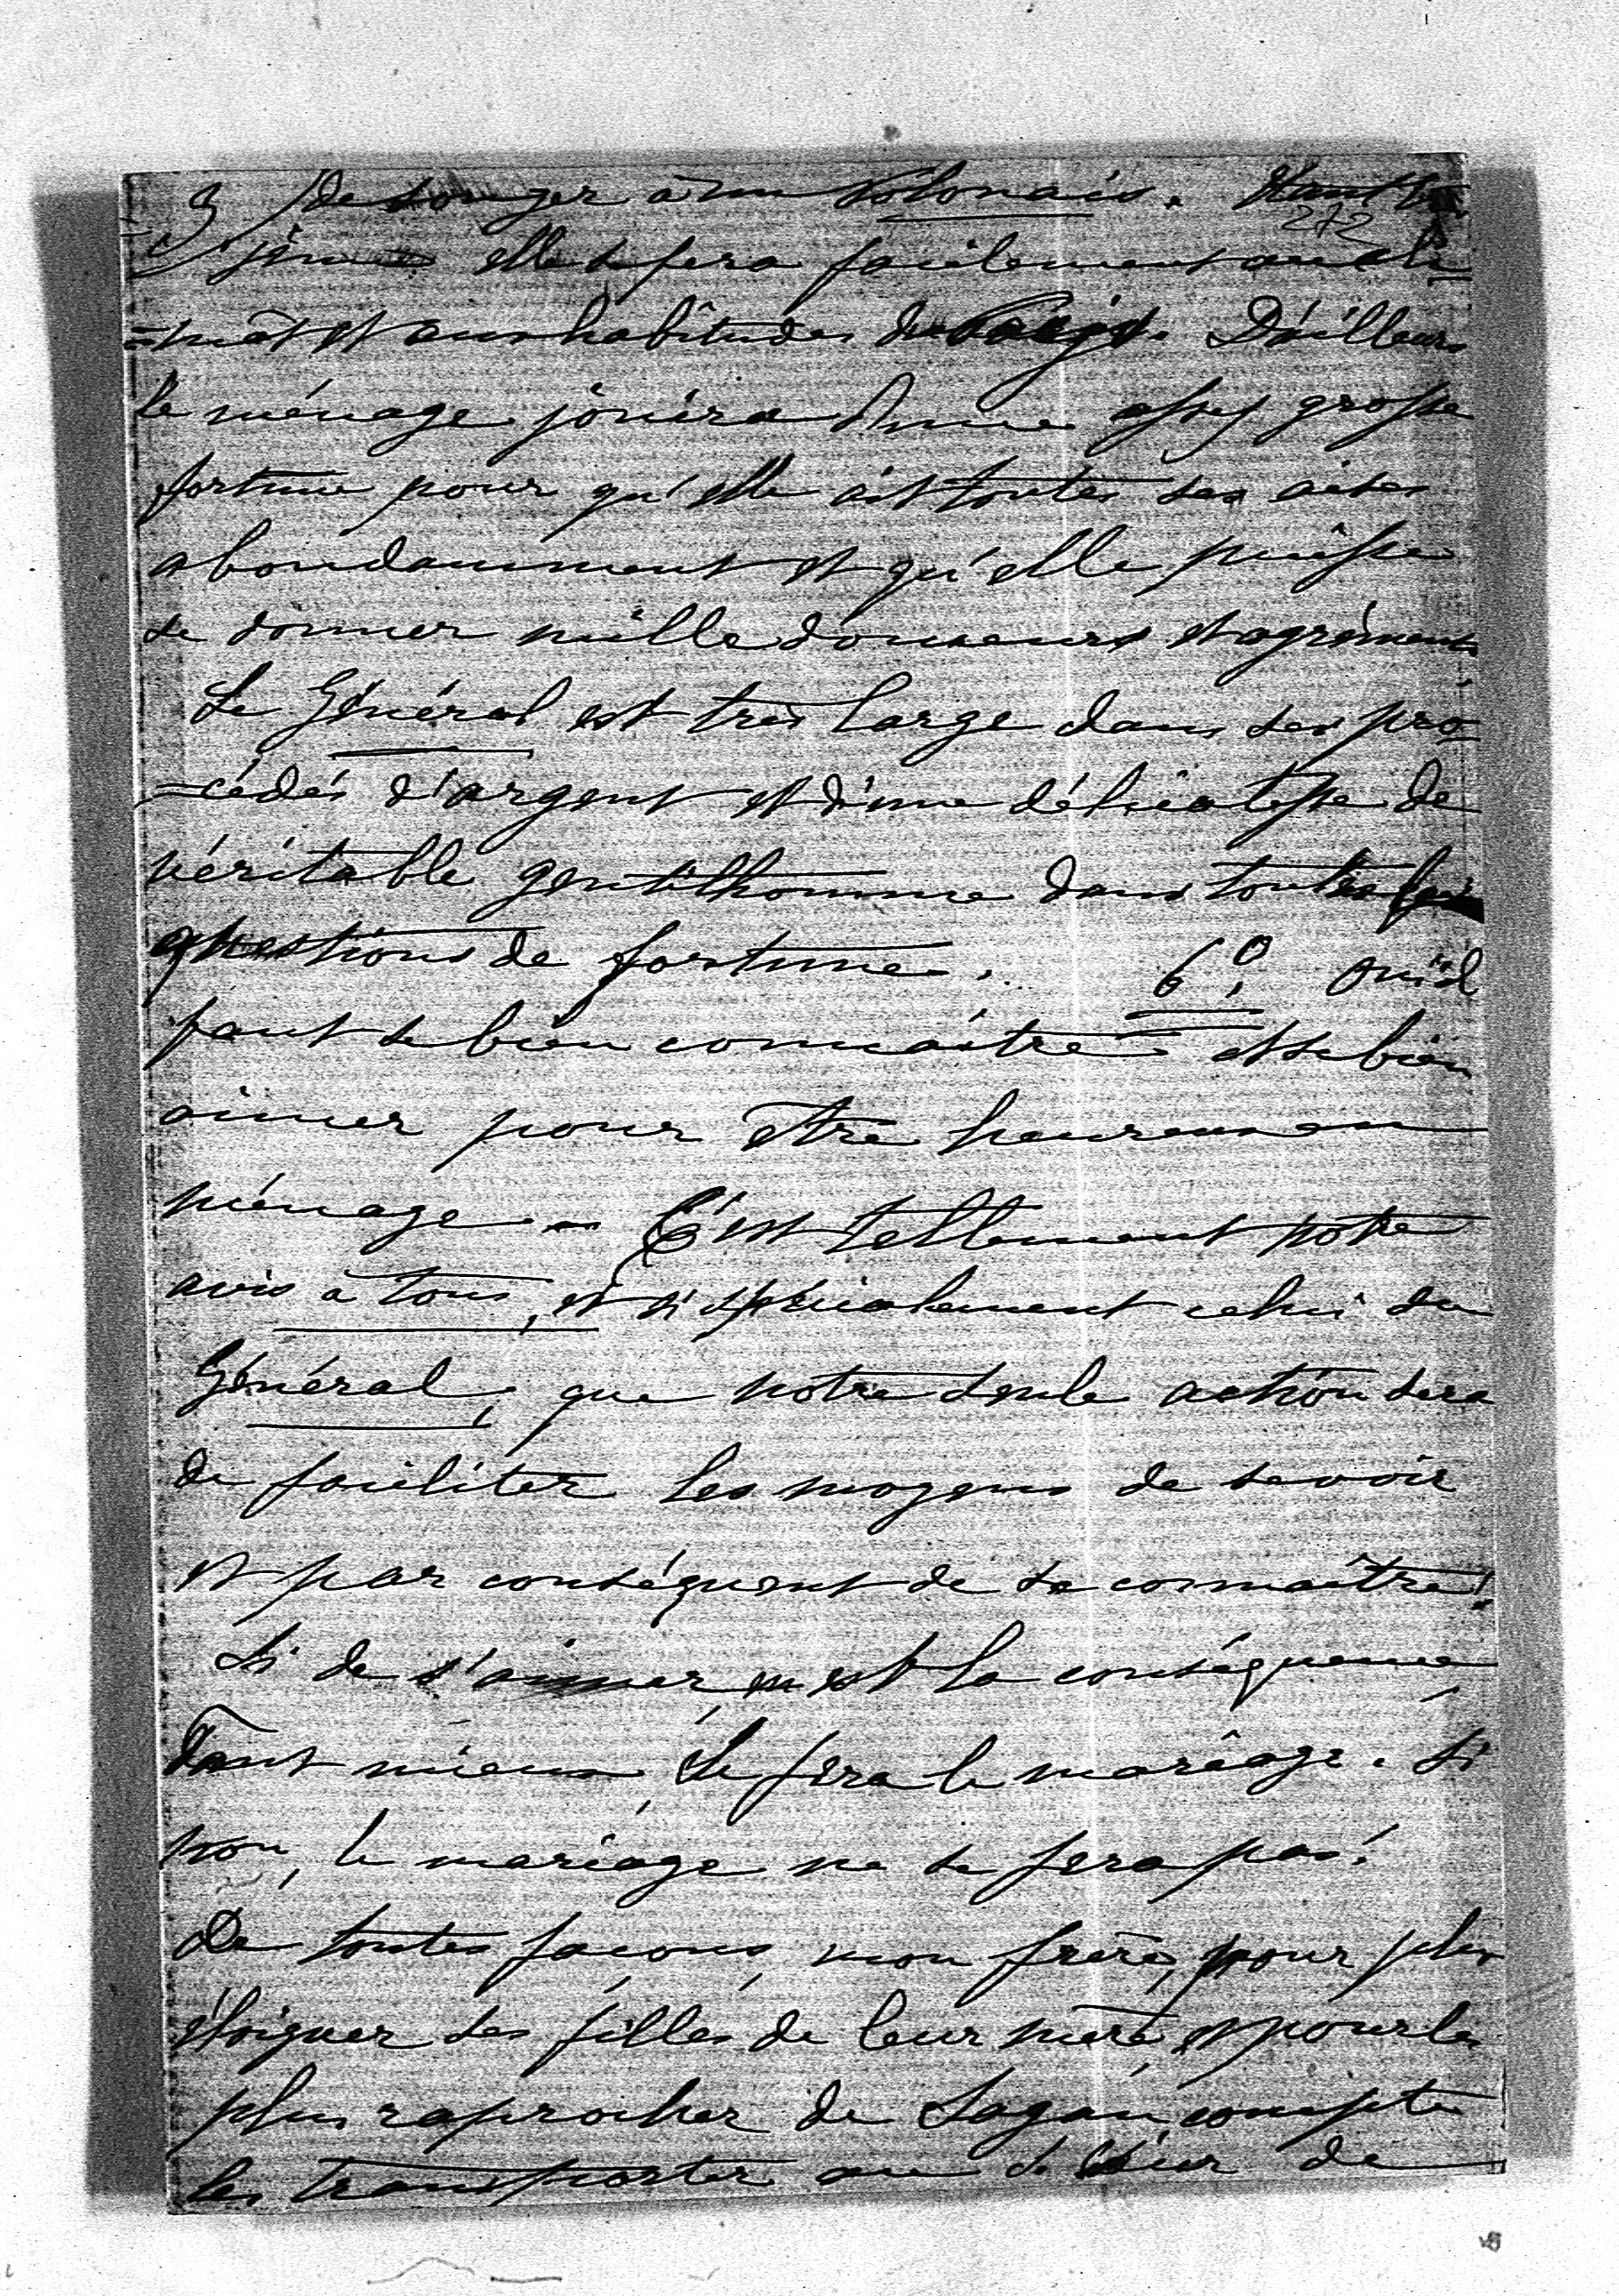 9 de songer à un Polonais. Etant
272
jeune elle se fera facilement au cli
=mat et aux habitudes du Pays. D'ailleurs
le ménage jouira d'une assez grosse
fortune pour qu'elle ait toutes ses aises
abondamment et qu'elle puisse
se donner mille douceurs et agréments.
Le Général est très large dans ses pro
=cédés d'argent et d'une délicatesse de
véritable gentilhomme dans toutes les
questions de fortune. 6º. Qu'il
faut se bien connaître et se bien
aimer pour être heureux en
ménage. — C'est tellement notre
avis à tous, et si spécialement celui du
Général, que notre seule action sera
de faciliter les moyens de se voir
et par conséquent de se connaître!
Si de s'aimer, en est la conséquence,
Tant mieux, Se fera le mariage. Si
non, le mariage ne se fera pas!
De toutes façons, mon frère, pour plus
éloigner ses filles de leur mère, et pour les
plus raprocher de Sagan, compte
les transporter au de